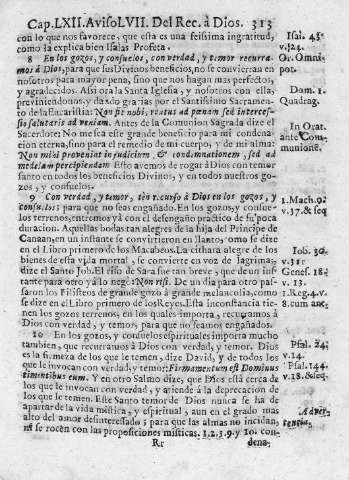 Cap. LXII. Aviso LVII. Del Rec. à Dios. 313
con lo que nos favorece, que esta es una feissima ingratitud,
como la explica bien Isaias Profeta.
8 En los gozos, y consuelos, con verdad, y temor recurra-
mos à Dios, para que sus Divinos beneficios, no se conviertan en
nosotros para mayor pena, sino que nos hagan mas perfectos,
y agradecidos. Assi ora la Santa Iglesia, y nosotros con ella,
previniendonos, y dando gracias por el Santissimo Sacramen-
to de la Eucaristia: Non sit nobis reatus ad pœnam sed interces-
sio salutaris ad veniam. Antes de la Comunion Sagrada dize el
Sacerdote: No me sea este grande beneficio para mi condena
cion eterna, sino para el remedio de mi cuerpo, y de mi alma:
Non mihi proveniat in judicium, & condemnationem, sed ad
medelam percipiendam Esto avemos de rogar à Dios con temor
santo en todos los beneficios Divinos, y en todos nuestros go-
zos, y consuelos.
9 Con verdad, y temor, sea recurso à Dios en los gozos, y
consuelos para que no seas engañado. En los gozos, y consue-
los terrenos, entremos yà con el desengaño practico de su poca
duracion. Aquellas bodas tan alegres de la hija del Principe de
Canaan, en un instante se convirtieron en llanto; como se dize
en el Libro primero de los Macabeos. La cithara alegre de los
bienes de esta vida mortal, se convierte en voz de lagrimas,
dize el Santo Job. El riso de Sara fue tan breve, que de un ins-
tante para otro yà lo negò: Non risi. De un dia para otro pas-
saron los Filisteos de grande gozo à grande melancolia, como
se dize en el Libro primero de los Reyes. Esta inconstancia tie-
nen los gozos terrenos, en los quales importa, recurramos à
Dios con verdad, y temor, para que no seamos engañados.
10 En los gozos, y consuelos espirituales importa mucho
tambien, que recurramos à Dios con verdad, y temor. Dios
es firmeza de los que le temen, dize David, y de todos los
que le invocan con verdad, y temor: Firmamentum est Dominus
timentibus eum. Y en otro Salmo dize, que Dios està cerca de
los que le invocan con verdad, y atiende à la deprecacion de
los que le temen. Este Santo temor de Dios nunca se ha de
apartar de la vida mistica, y espiritual, aun en el grado mas
alto del amor desinteressado; para que las almas no incidan,
ni se rocen con las proposiciones misticas. 1. 2. 3. 9. y 10. con-
Rr dena-
Isai. 45.
v. 24.
Or. Omni
pot.
Dom. 1.
Quadrag.
In Orat.
ante Com
munionē.
1. Mach. 9.
v. 37. & seq
Job. 30.
v. 31.
Genes. 18.
v. 13.
1. Reg. 4. v.
8. cum anc.
Psal. 24.
v. 14.
Psal. 144.
v. 18. & seq.
Adver-
tencia.